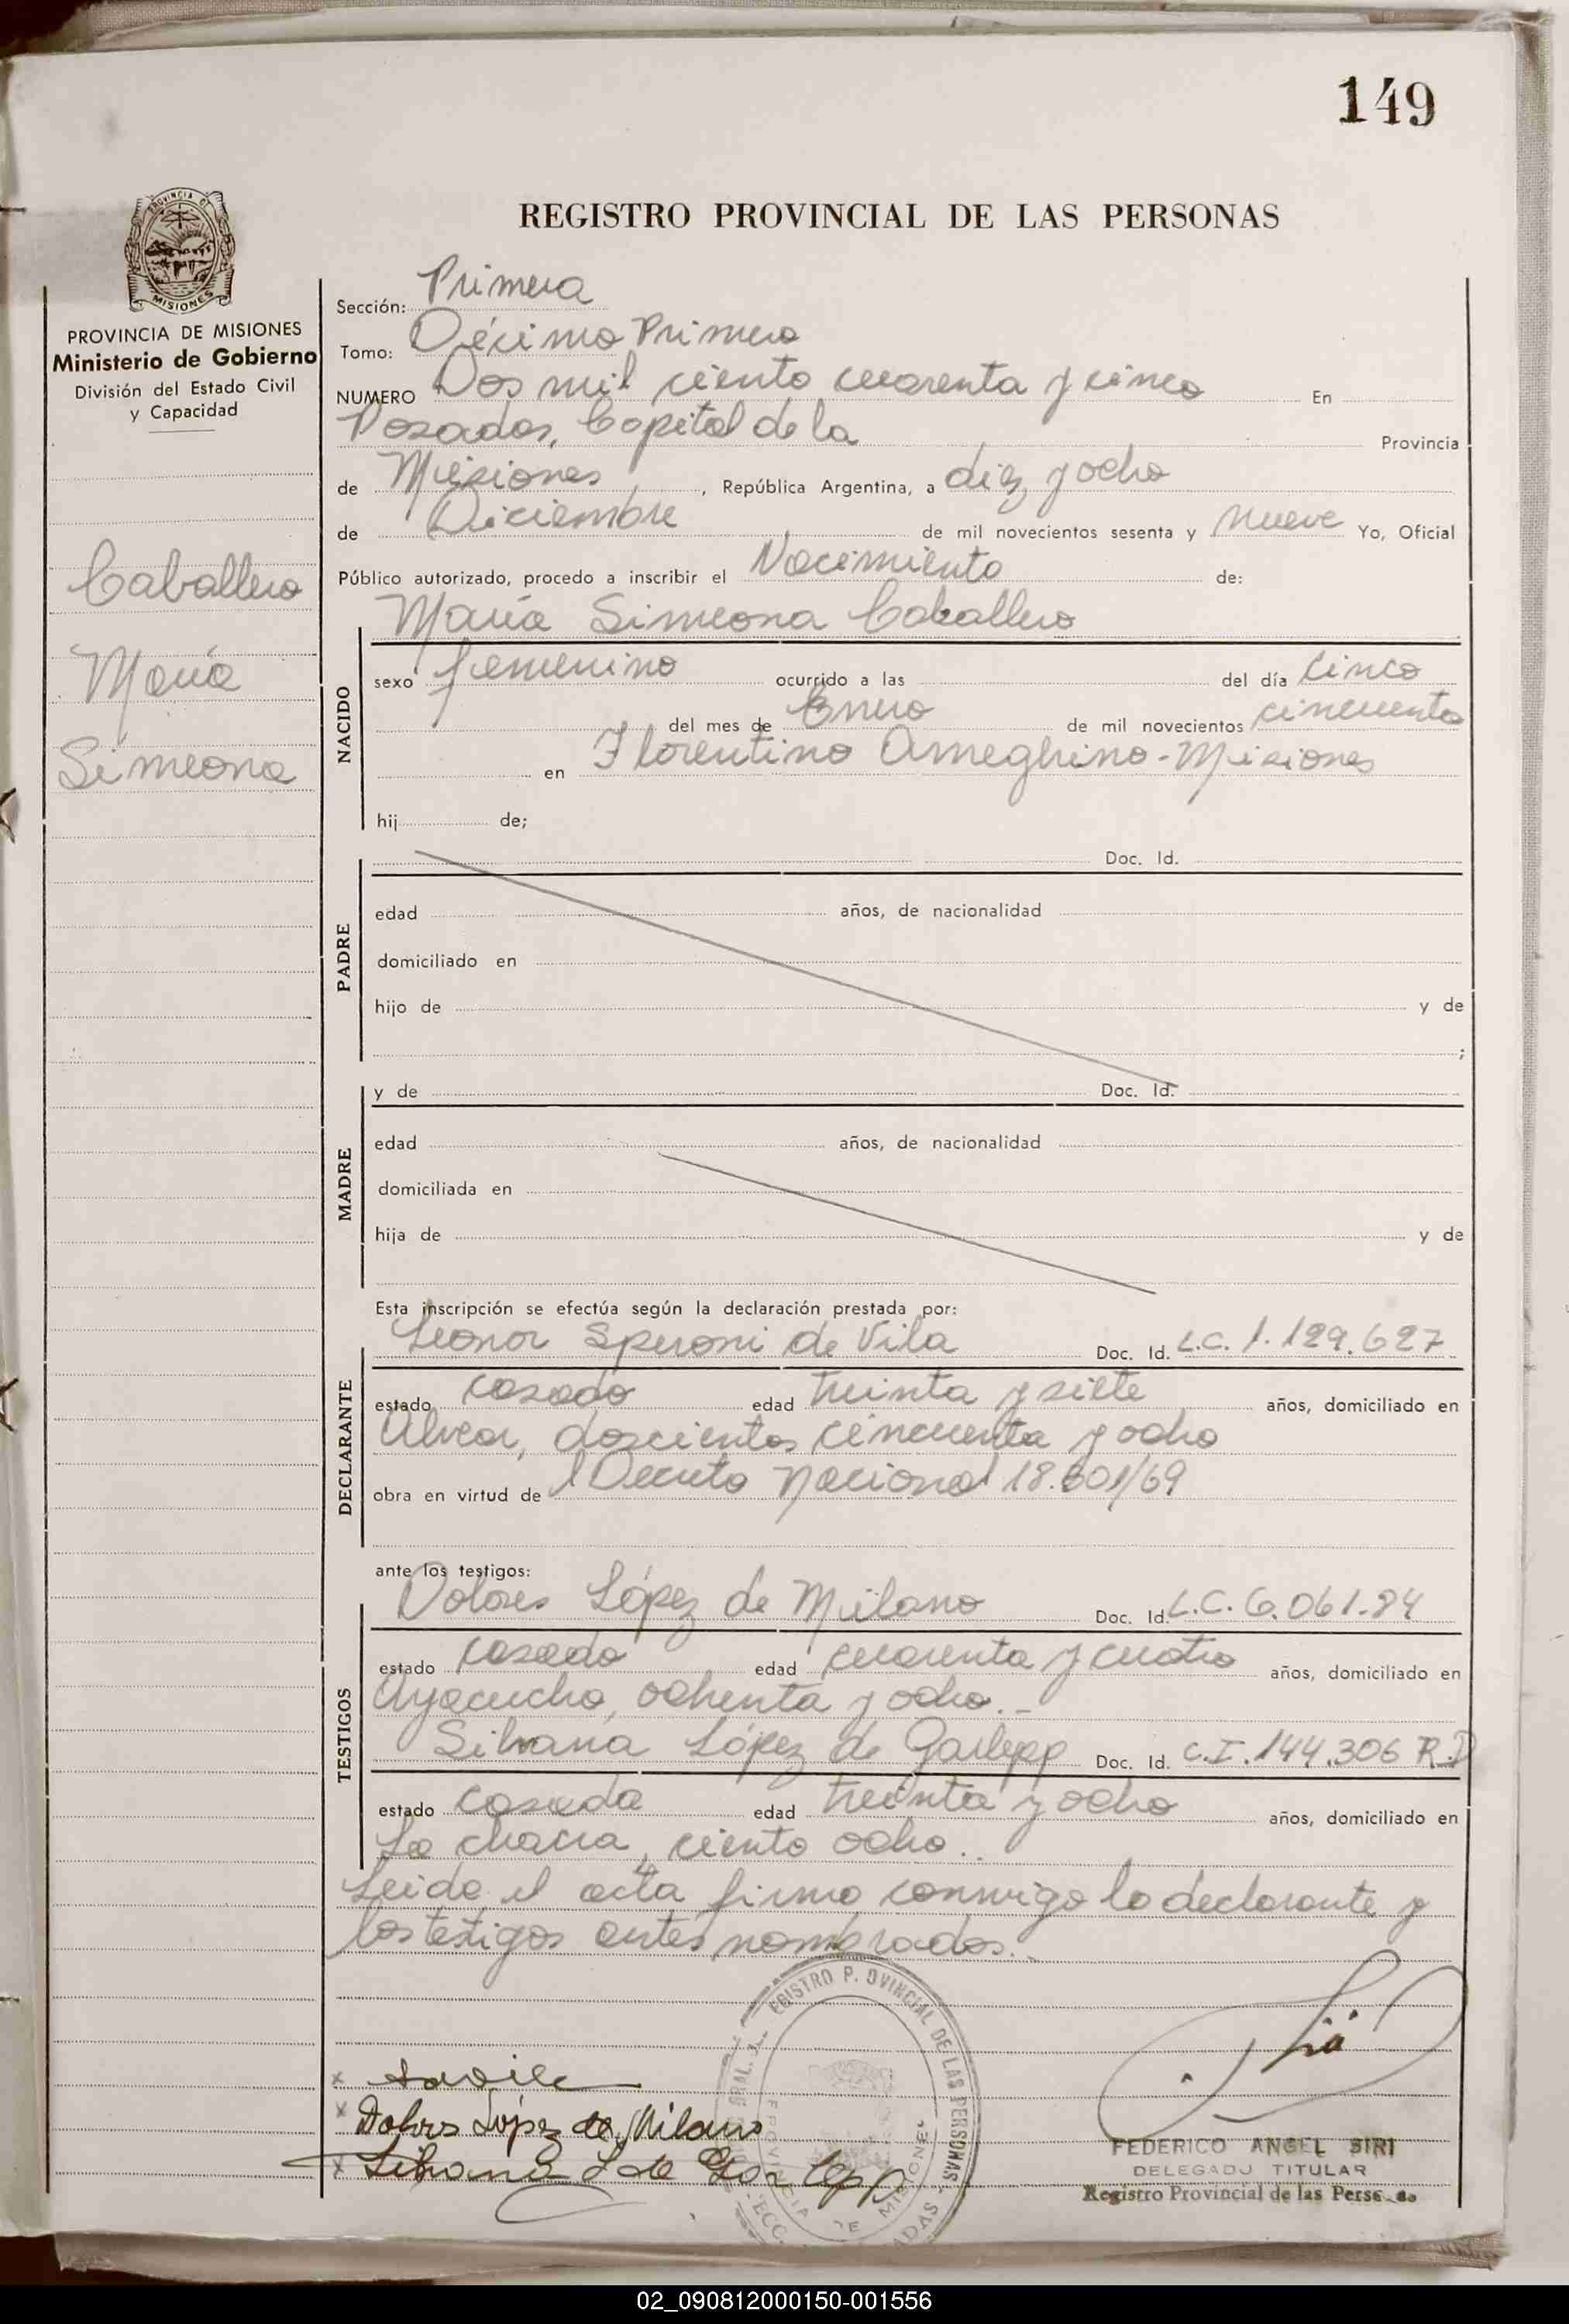 149
REGISTRO PROVINCIAL DE LAS PERSONAS
PROVINCIA DE MISIONES
Ministerio de Gobierno
División del Estado Civil
y Capacidad
Caballero
María
Simeona
Sección: Primera
Tomo: Décimo Primero
NUMERO Dos mil ciento cuarenta y cinco En
Posadas, Capital de la Provincia
de Misiones, República Argentina, a diez y ocho
de Diciembre de mil novecientos sesenta y nueve Yo, Oficial
Público autorizado, procedo a inscribir el Nacimiento de:
María Simeona Caballero
NACIDO
sexo femenino ocurrido a las del día cinco
del mes de Enero de mil novecientos cincuenta
en Florentino Ameghino - Misiones
hij de;
PADRE
Doc. Id.
edad años, de nacionalidad
domiciliado en
hijo de y de
;
MADRE
y de Doc. Id.
edad años, de nacionalidad
domiciliada en
hija de y de
Esta inscripción se efectúa según la declaración prestada por:
DECLARANTE
Leonor Speroni de Vila Doc. Id. L.C. 1.129.627
estado casado edad treinta y siete años, domiciliado en
Alvear, doscientos cincuenta y ocho
obra en virtud de l Decreto Nacional 18.301/69
ante los testigos:
TESTIGOS
Dolores López de Milano Doc. Id. L.C. 6.061.84
estado casado edad cuarenta y cuatro años, domiciliado en
Ayacucho, ochenta y ocho.-
Silvana López de Garlepp Doc. Id. C.I. 144.306 R.P
estado casada edad treinta y ocho años, domiciliado en
La chacra, ciento ocho..
Leida el acta firma conmigo la declarante y
los testigos antes nombrados..
Dolores López de Milano
Silvana L de Garlepp
FEDERICO ANGEL SIRI
DELEGADO TITULAR
Registro Provincial de las Perso
02_090812000150-001556